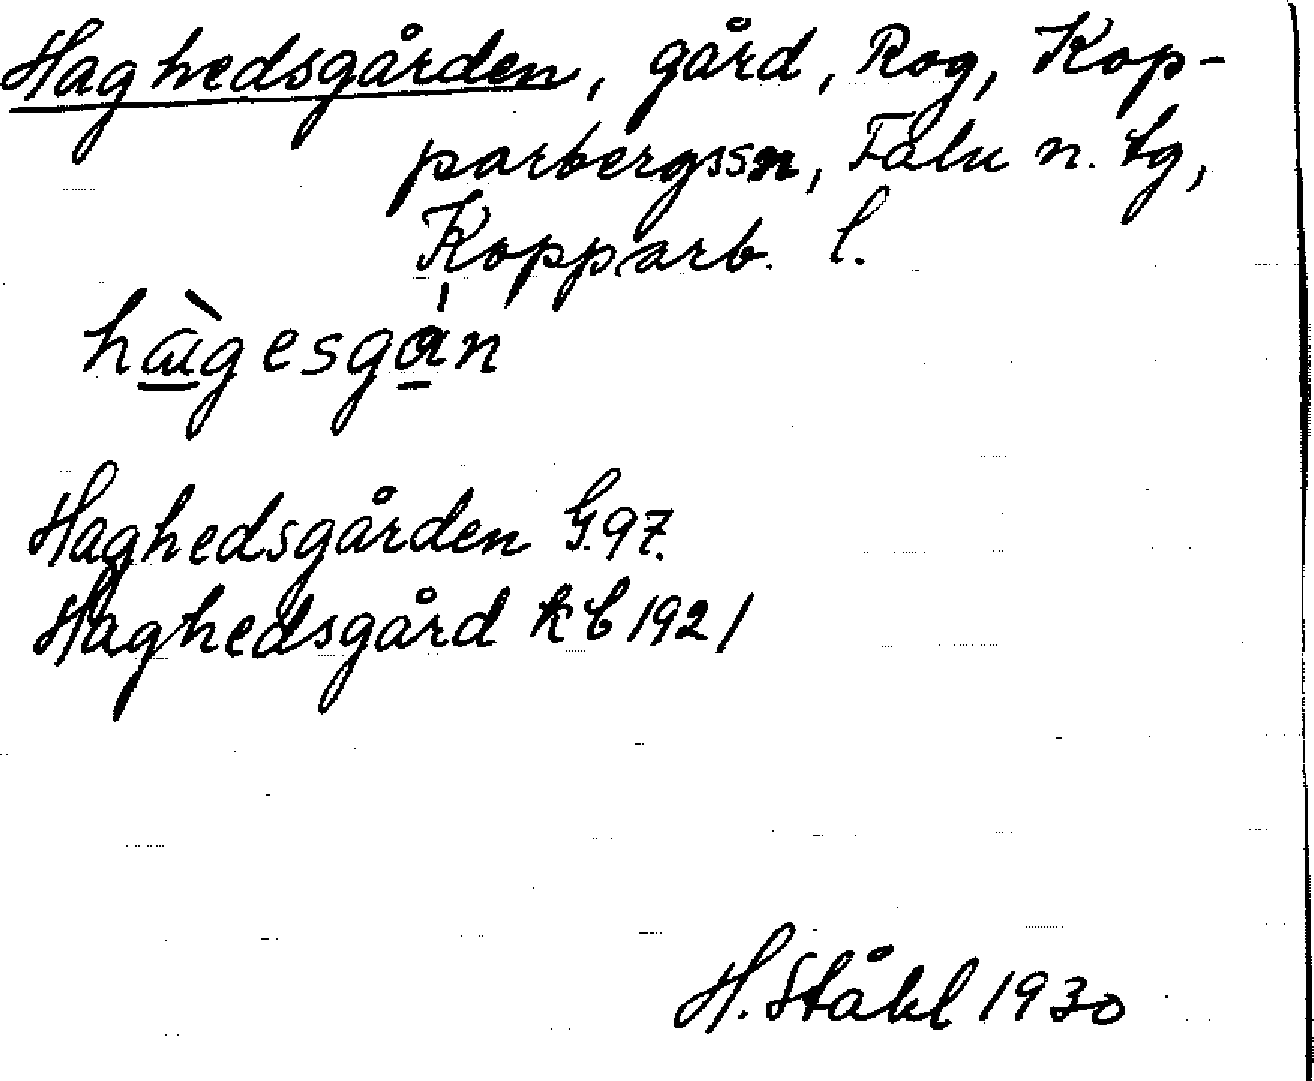 Haghedsgården, gård, Rog, Kop-
parbergssn, Falu n. tg,
Kopparb. l.
Haghedsgården G.97.
Haghedsgård kb 1921
H. Ståhl 1930